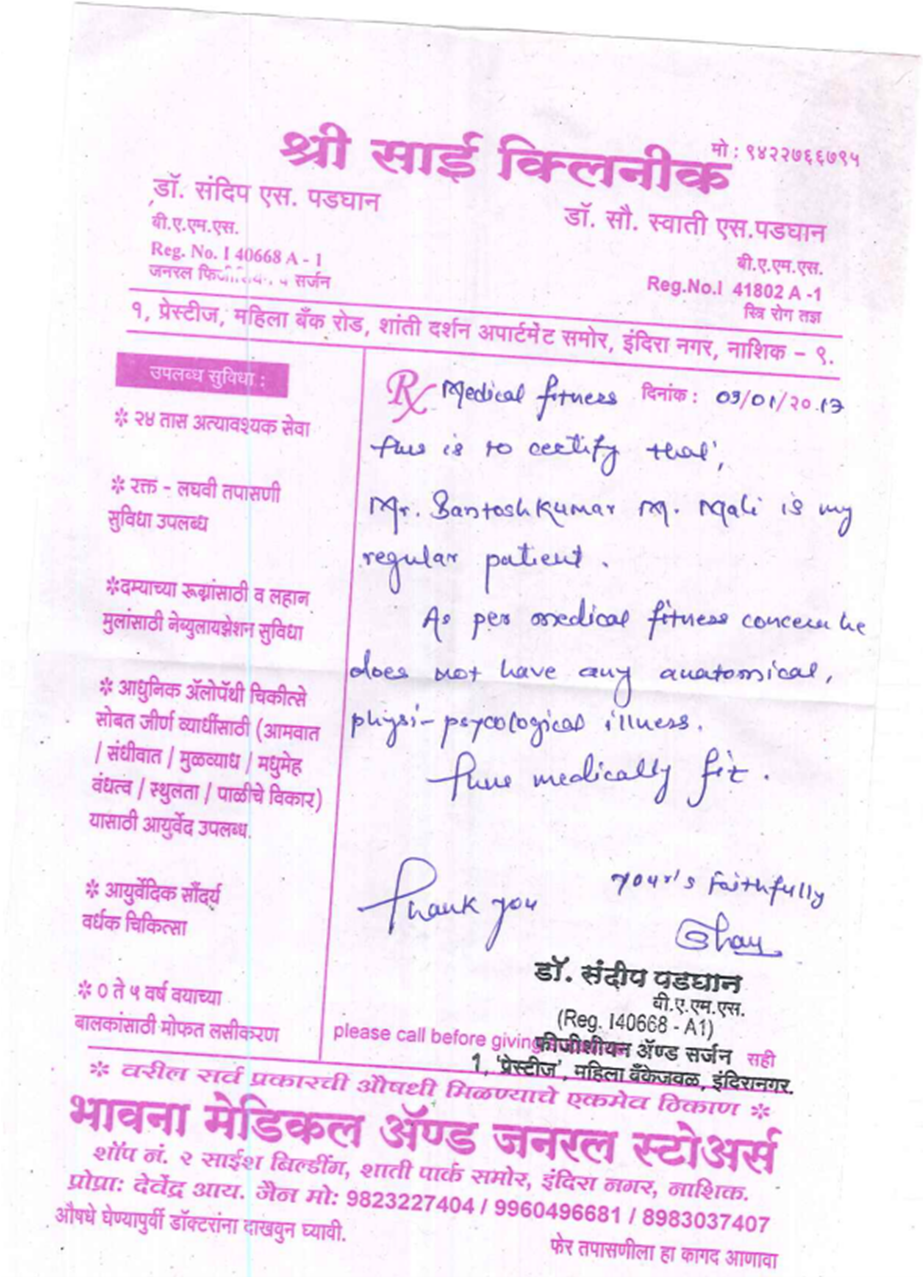 श्री साई क्लिनीक
मो : ९४२२७६६७९५
डॉ. संदिप एस. पडघान
बी.ए.एम.एस.
Reg. No. I 40668 A - 1
जनरल व सर्जन
डॉ. सौ. स्वाती एस.पडघान
बी.ए.एम.एस.
Reg.No.I 41802 A -1
स्त्रि रोग तज्ञ
१, प्रेस्टीज, महिला बँक रोड, शांती दर्शन अपार्टमेंट समोर, इंदिरा नगर, नाशिक – ९.
उपलब्ध सुविधा :
❊ २४ तास अत्यावश्यक सेवा
❊ रक्त - लघवी तपासणी
सुविधा उपलब्ध
❊दम्याच्या रूग्नांसाठी व लहान
मुलांसाठी नेब्युलायझेशन सुविधा
❊ आधुनिक ॲलोपॅथी चिकीत्से
सोबत जीर्ण व्याधींसाठी (आमवात
/ संधीवात / मुळव्याध / मधुमेह
वंधत्व / स्थुलता / पाळीचे विकार)
यासाठी आयुर्वेद उपलब्ध.
❊ आयुर्वेदिक सौंदर्य
वर्धक चिकित्सा
❊ ० ते ५ वर्ष वयाच्या
बालकांसाठी मोफत लसीकरण
Rx Medical fitness दिनांक : 09/01/20.17
This is to certify that,
Mr. Santosh Kumar M. Mali is my
regular patient.
As per medical fitness concern he
does not have any anatomical,
physi-psycological illness.
medically fit.
Thank you
your's Faithfully
डॉ. संदीप पडघान
बी.ए.एम.एस.
(Reg. I40668 - A1)
please call before giving
फीजीशीयन ॲण्ड सर्जन सही
1, 'प्रेस्टीज', महिला बँकेजवळ, इंदिरानगर.
❊ वरील सर्व प्रकारची औषधी मिळण्याचे एकमेव ठिकाण ❊
भावना मेडिकल ॲण्ड जनरल स्टोअर्स
शॉप नं. २ साईश बिल्डींग, शाती पार्क समोर, इंदिरा नगर, नाशिक.
प्रोप्रा: देवेंद्र आय. जैन मो: 9823227404 / 9960496681 / 8983037407
औषधे घेण्यापुर्वी डॉक्टरांना दाखवुन घ्यावी.
फेर तपासणीला हा कागद आणावा